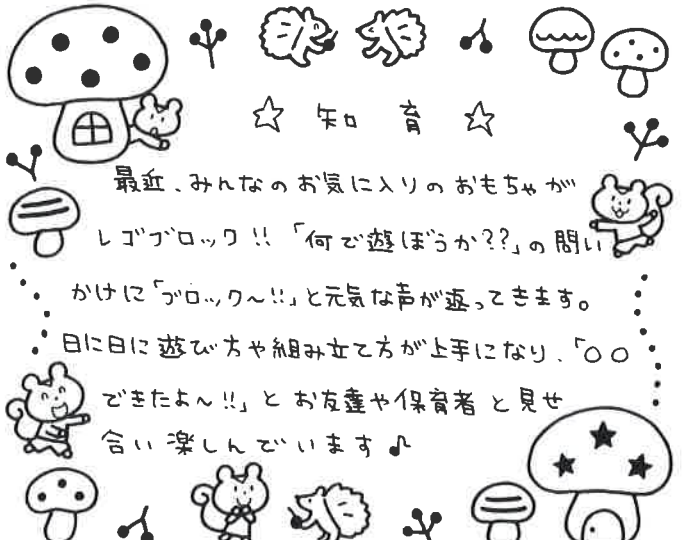 ☆ 知育 ☆
最近、みんなのお気に入りのおもちゃが
レゴブロック!!「何で遊ぼうか??」の問い
かけに「ブロック〜!!」と元気な声が返ってきます。
日に日に遊び方や組み立て方が上手になり、「〇〇
できたよ〜!!」とお友達や保育者と見せ
合い楽しんでいます♪